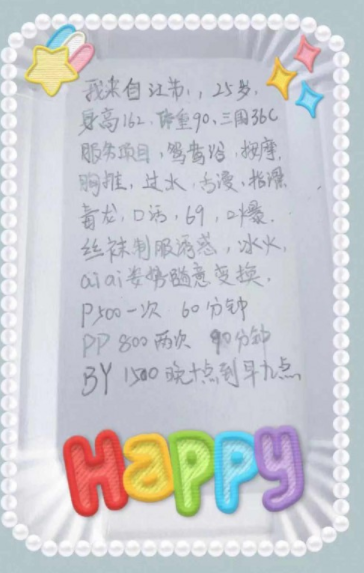 我来自江苏，，25岁，
身高162，体重90、三围36C
服务项目，鸳鸯浴，按摩，
胸推，过水，舌漫，指滑
毒龙，口活，69，口爆
丝袜制服诱惑，冰火，
aiai姿势随意变换，
P500一次 60分钟
PP 800两次 90分钟
BY 1500晚十点到早九点
Happy